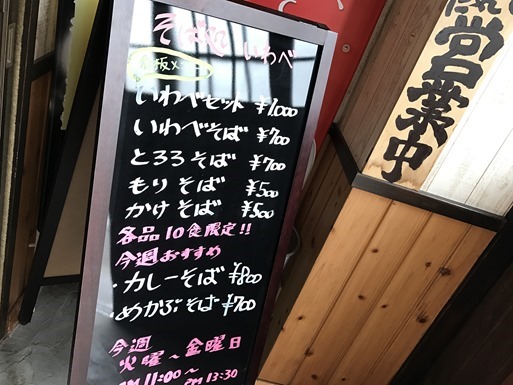 そば処 いわべ
看板メ
いわべセット ¥1,000
いわべそば ¥700
とろろそば ¥700
もりそば ¥500
かけそば ¥500
各品10食限定!!
今週おすすめ
・カレーそば ¥800
・めかぶそば ¥700
今週
火曜～金曜日
AM 11:00～PM 13:30
営業中